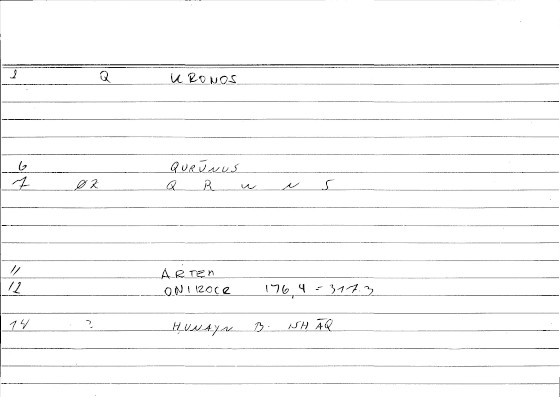 1 Q KRONOS
6 QURŪNUS
7 ØR Q R W N S
11 ARTEM
12 ONIROCR 176,4 = 317.3
14 ? HUNAYN B. ISHĀQ